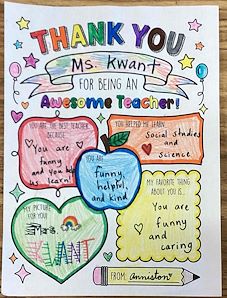 THANK YOU
Ms. Kwant
FOR BEING AN
Awesome Teacher!
YOU ARE THE BEST TEACHER
BECAUSE
You are
funny
and you help
us learn
YOU HELPED ME LEARN
Social studies
and
Science
YOU ARE
funny,
helpful,
and kind
MY FAVORITE THING
ABOUT YOU IS...
You are
funny
and
caring
MY PICTURE
FOR YOU!
KWANT
FROM: Anniston